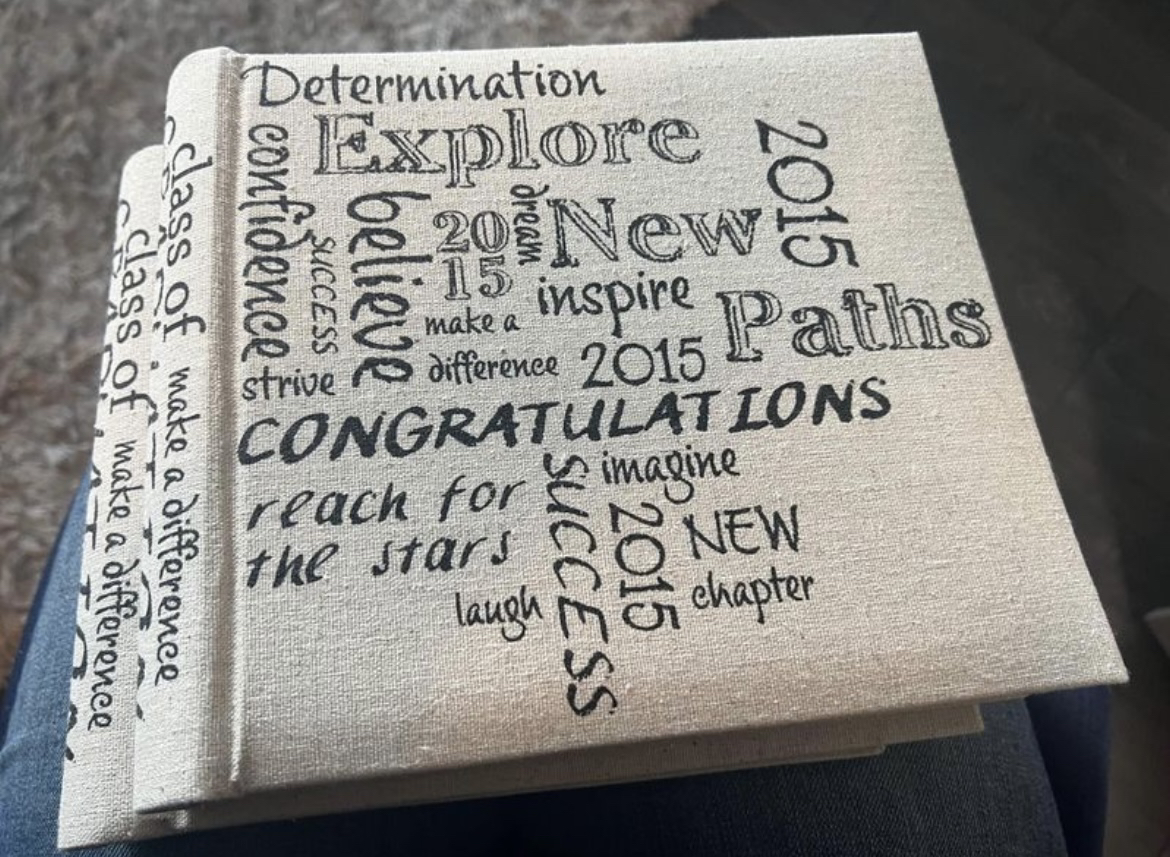 Determination
Explore
confidence
believe
20
15
dream
New
2015
success
inspire
Paths
make a
difference
2015
strive
CONGRATULATIONS
reach for
the stars
SUCCESS
imagine
2015
NEW
chapter
laugh
class of
make a difference
class of
make a difference